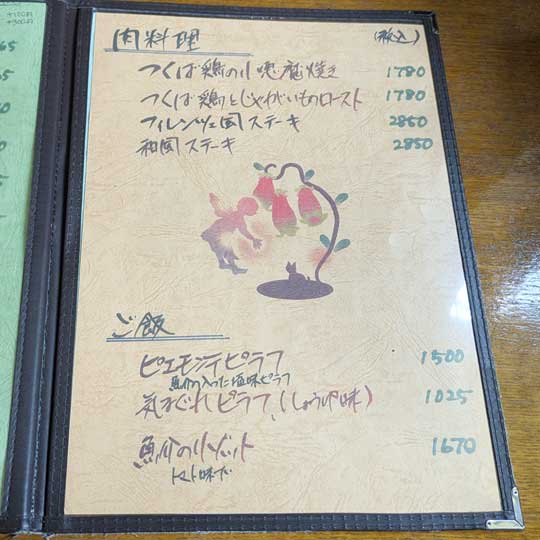 肉料理 (税込)
つくば鶏の小悪魔焼き 1780
つくば鶏とじゃがいものロースト 1780
フィレンツェ風ステーキ 2850
和風ステーキ 2850
ご飯
ピエモンテピラフ 1500
魚介の入った塩味ピラフ
気まぐれピラフ(しょうゆ味) 1025
魚介のリゾット 1670
トマト味で